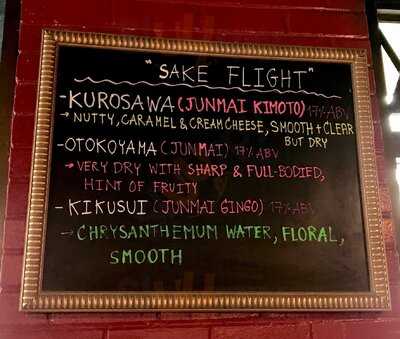 "SAKE FLIGHT"
-KUROSAWA (JUNMAI KIMOTO) 17% ABV
→ NUTTY, CARAMEL & CREAM CHEESE, SMOOTH + CLEAR
BUT DRY
-OTOKOYAMA (JUNMAI) 17% ABV
→ VERY DRY WITH SHARP & FULL-BODIED,
HINT OF FRUITY
-KIKUSUI (JUNMAI GINGO) 17% ABV
→ CHRYSANTHEMUM WATER, FLORAL,
SMOOTH